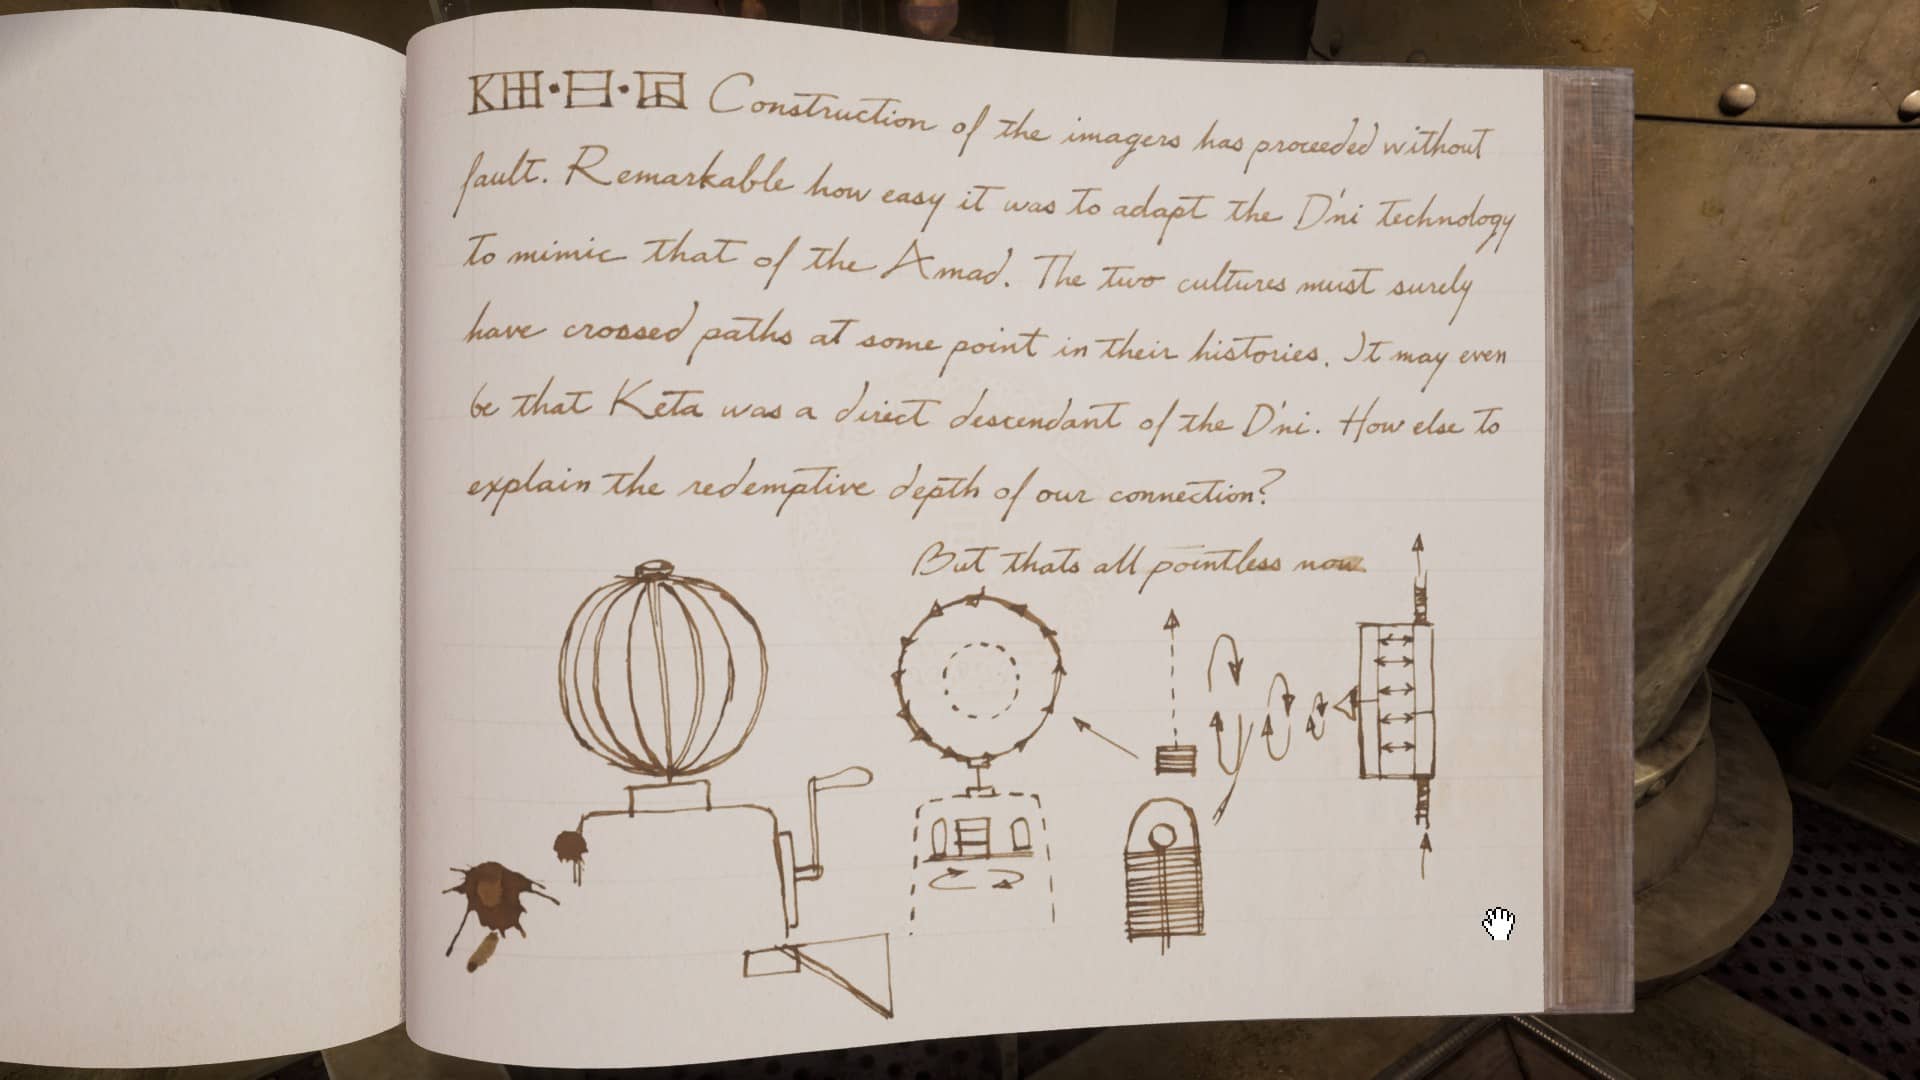 Construction of the imagers has proceeded without
fault. Remarkable how easy it was to adapt the D'ni technology
to mimic that of the Amad. The two cultures must surely
have crossed paths at some point in their histories. It may even
be that Keta was a direct descendant of the D'ni. How else to
explain the redemptive depth of our connection?
But thats all pointless now